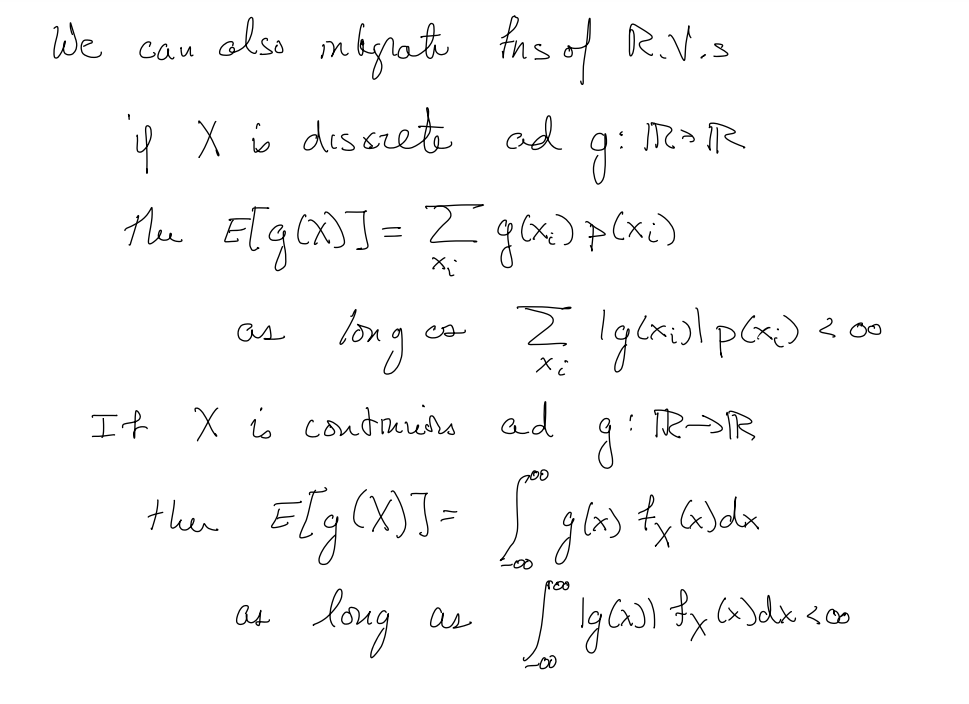 We can also integrate fns of R.V.s
if X is discrete ad g: ℝ→ℝ
the E[g(X)] = ∑_{x_i} g(x_i) p(x_i)
as long as ∑_{x_i} |g(x_i)| p(x_i) < ∞
If X is continuous ad g: ℝ→ℝ
then E[g(X)] = ∫_{-∞}^{∞} g(x) f_X(x)dx
as long as ∫_{-∞}^{∞} |g(x)| f_X(x)dx < ∞